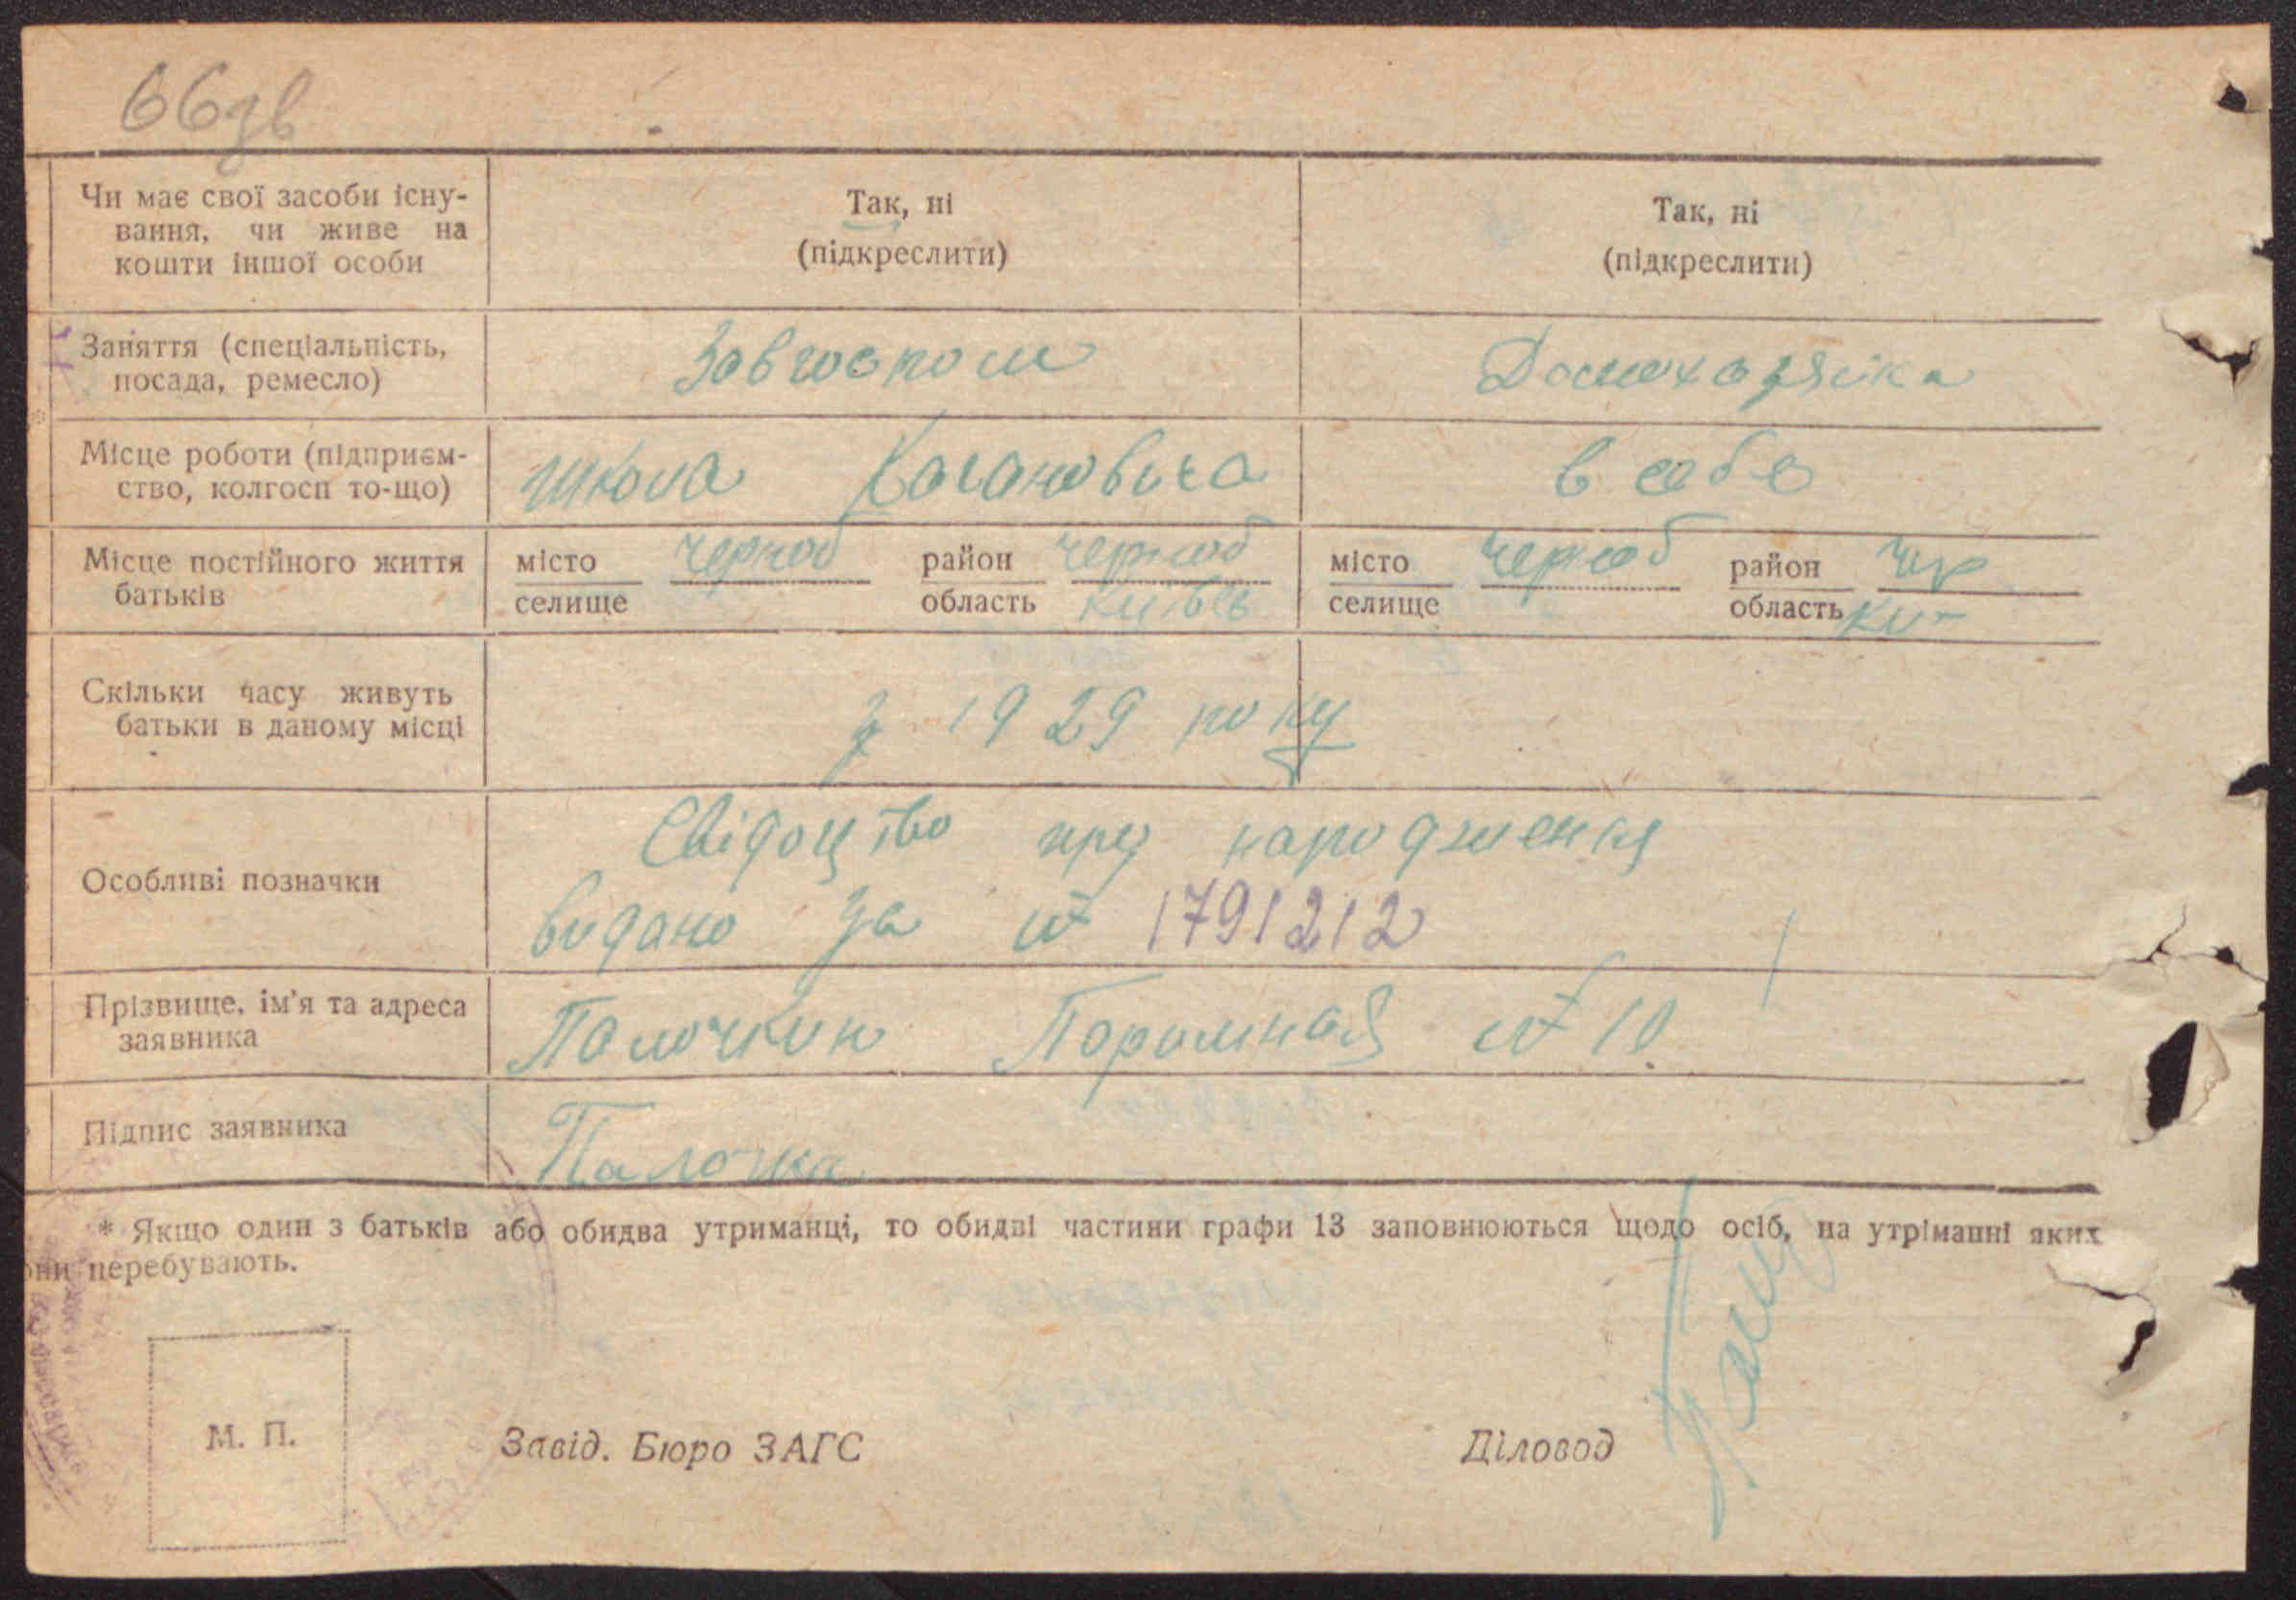 66зв
Чи має свої засоби існу-
вання, чи живе на
кошти іншої особи
Так, ні
(підкреслити)
Так, ні
(підкреслити)
Заняття (спеціальність,
посада, ремесло)
Завгоспом
Домохазяйка
Місце роботи (підприєм-
ство, колгосп то-що)
школа Кагановича
в себе
Місце постійного життя
батьків
місто черноб район черноб
селище область київсь
місто черноб район чер
селище область ки-
Скільки часу живуть
батьки в даному місці
з 1929 року
Особливі позначки
Свідоцтво про народження
видано за № 1791212
Прізвище, ім'я та адреса
заявника
Палочкин Паромная № 10
Підпис заявника
Палочка
* Якщо один з батьків або обидва утриманці, то обидві частини графи 13 заповнюються щодо осіб, на утріманні яких
они перебувають.
М. П.
Завід. Бюро ЗАГС
Діловод